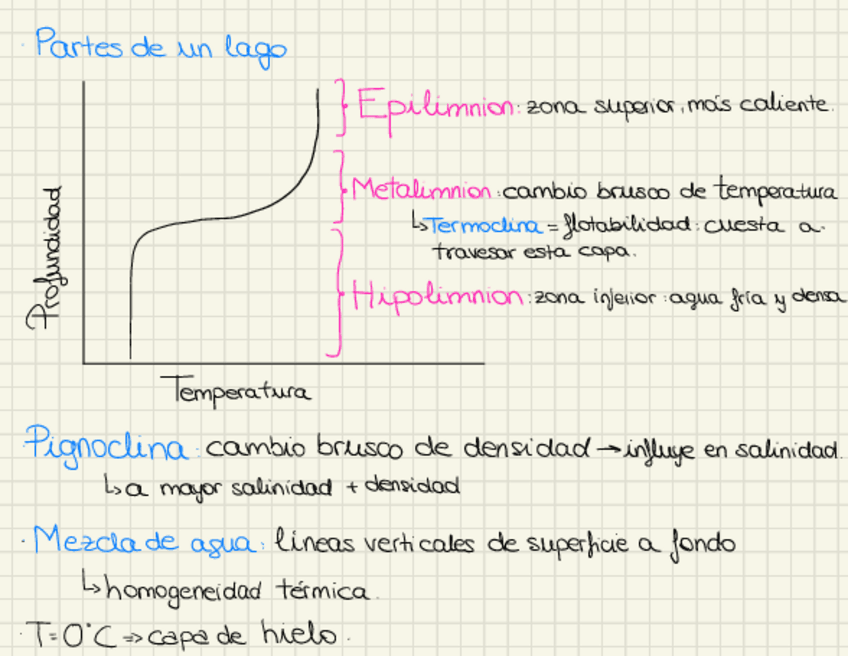 · Partes de un lago
Epilimnion: zona superior, más caliente.
Metalimnion: cambio brusco de temperatura
↳Termoclina = flotabilidad: cuesta a-
travesar esta capa.
Hipolimnion: zona inferior: agua fría y densa
Profundidad
Temperatura
Pignoclina: cambio brusco de densidad → influye en salinidad.
↳a mayor salinidad + densidad
· Mezcla de agua: líneas verticales de superficie a fondo
↳homogeneidad térmica.
· T=0°C ⇒ capa de hielo.